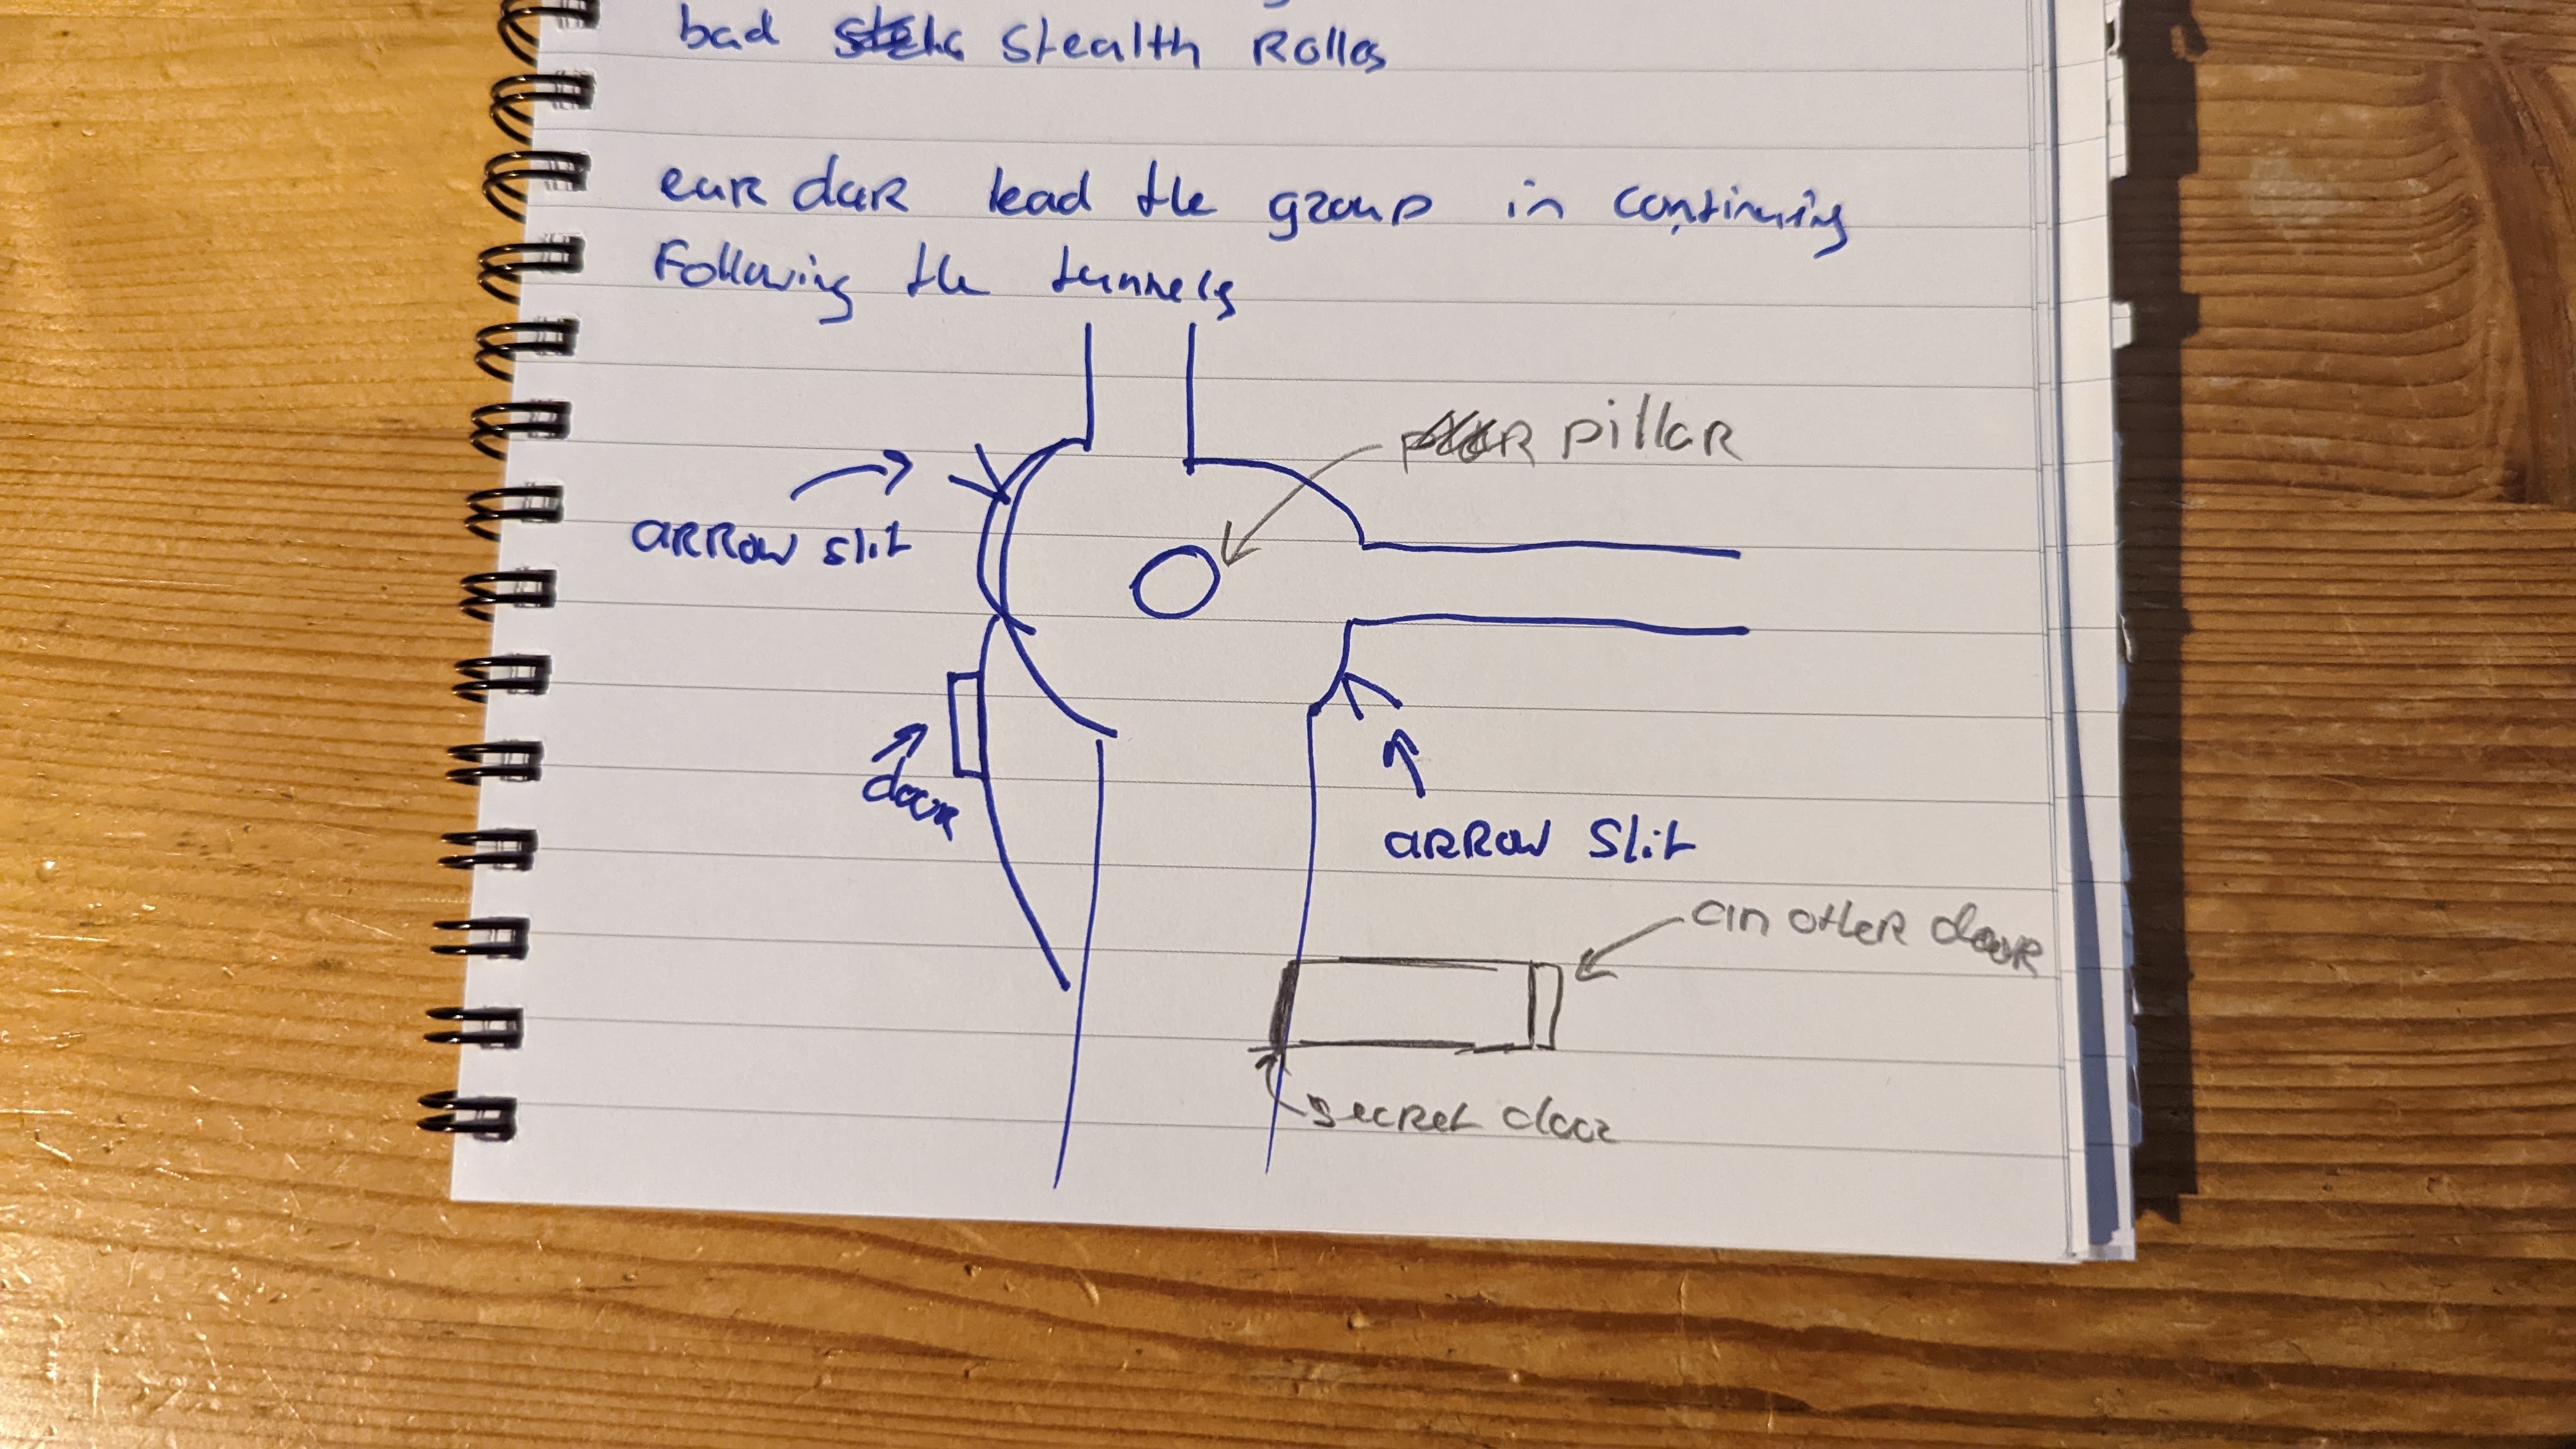 bad stealth Rolls
eur dar lead the group in continuing
Following the tunnels
pillar
arrow slit
door
arrow slit
an other door
secret door